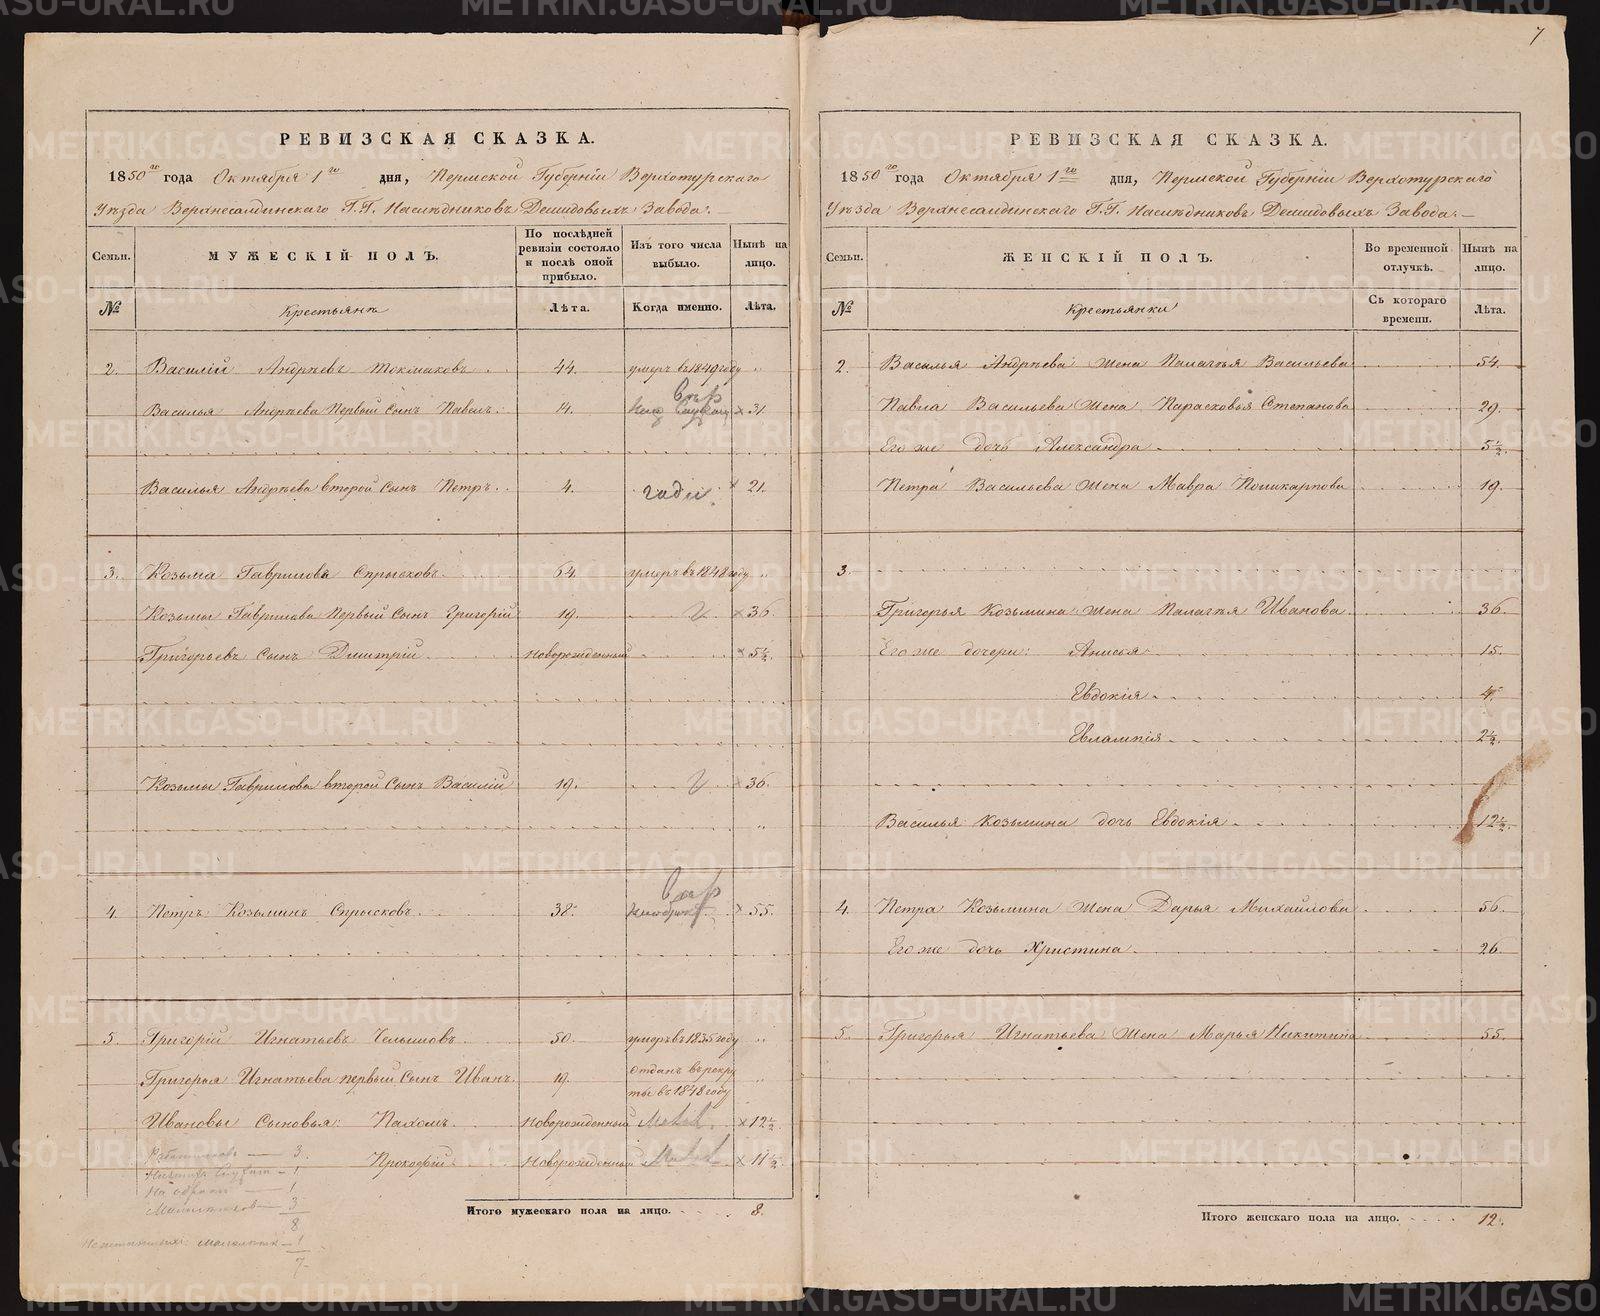 7
РЕВИЗСКАЯ СКАЗКА.
1850го года Октября 1го дня, Пермской Губернии Верхотурскаго
Уѣзда Верхнесалдинскаго Г.Г. Наслѣдниковъ Демидовыхъ Завода.
Семьи. МУЖЕСКІЙ ПОЛЪ. По послѣдней ревизіи состояло и послѣ оной прибыло. Изъ того числа выбыло. Нынѣ на лицо.
№ Крестьянъ Лѣта. Когда именно. Лѣта.
2. Василій Андрѣевъ Токмаковъ. 44. умеръ въ 1849 году "
Василья Андрѣева Первый Сынъ Павелъ. 14. × 31.
Василья Андрѣева второй Сынъ Петръ. 4. × 21.
3. Козьма Гавриловъ Спрысковъ. 64. умеръ въ 1848 году "
Козьмы Гаврилова Первый Сынъ Григорій 19. × 36.
Григорьевъ Сынъ Дмитрій. Новорожденный × 5½.
Козьмы Гаврилова второй Сынъ Василій 19. × 36.
4. Петръ Козьминъ Спрысковъ. 38. × 55.
5. Григорій Игнатьевъ Челышовъ. 50. умеръ въ 1835 году "
Григорья Игнатьева первый Сынъ Иванъ. 19. Отданъ въ рекруты въ 1848 году "
Ивановы Сыновья: Пахомъ. Новорожденный × 12½.
Прокофій. Новорожденный × 11½.
Итого мужескаго пола на лицо. 8.
3
1
1
3
8
1
7
РЕВИЗСКАЯ СКАЗКА.
1850го года Октября 1го дня, Пермской Губерніи Верхотурскаго
Уѣзда Верхнесалдинскаго Г.Г. Наслѣдниковъ Демидовыхъ Завода.
Семьи. ЖЕНСКІЙ ПОЛЪ. Во временной отлучкѣ. Нынѣ на лицо.
№ Крестьянки Съ котораго времени. Лѣта.
2. Василья Андрѣева жена Палагѣя Васильева 54.
Павла Васильева жена Парасковья Степанова 29.
Его же дочь Александра 5½.
Петра Васильева жена Мавра Поликарпова 19.
3.
Григорья Козьмина жена Палагѣя Иванова 36.
Его же дочери: Анисья 15.
Евдокія 4.
Евлампія 2½.
Василья Козьмина дочь Евдокія 12½.
4. Петра Козьмина жена Дарья Михайлова 56.
Его же дочь Христина 26.
5. Григорья Игнатьева жена Марья Никитина 55.
Итого женскаго пола на лицо. 12.
METRIKI.GASO-URAL.RU